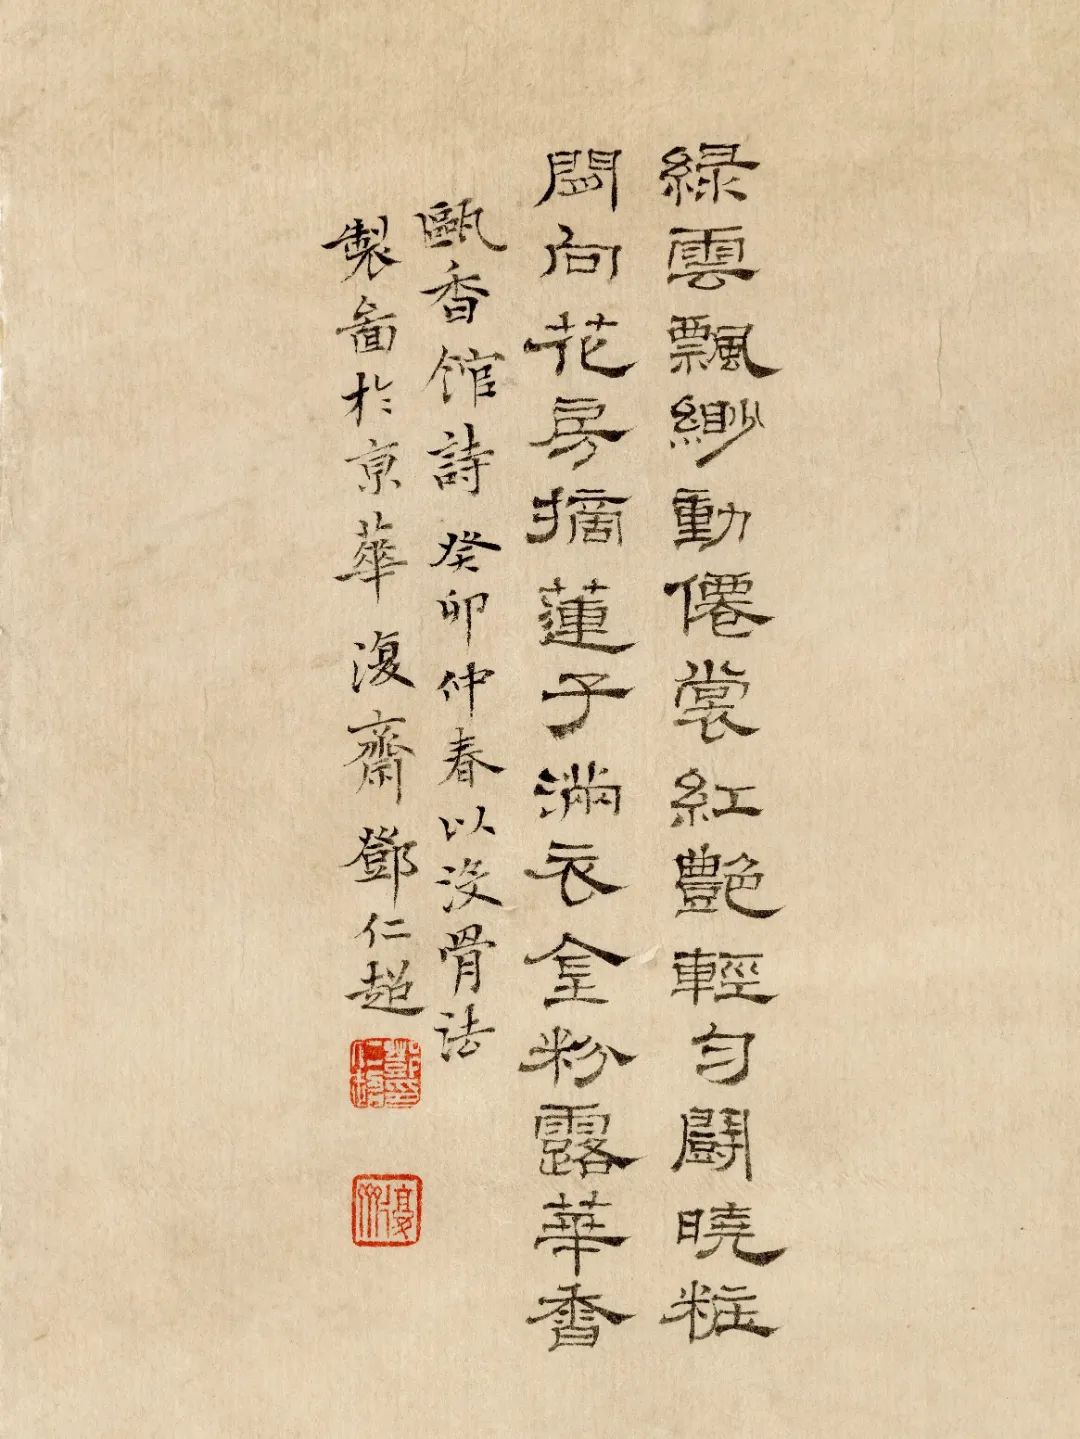 綠雲飄緲動僊裳紅艷輕勻鬪曉粧
閒向花房摘蓮子滿衣金粉露華香
甌香館詩 癸卯仲春以沒骨法
製圖於京華 復齋鄧仁超
鄧仁超印